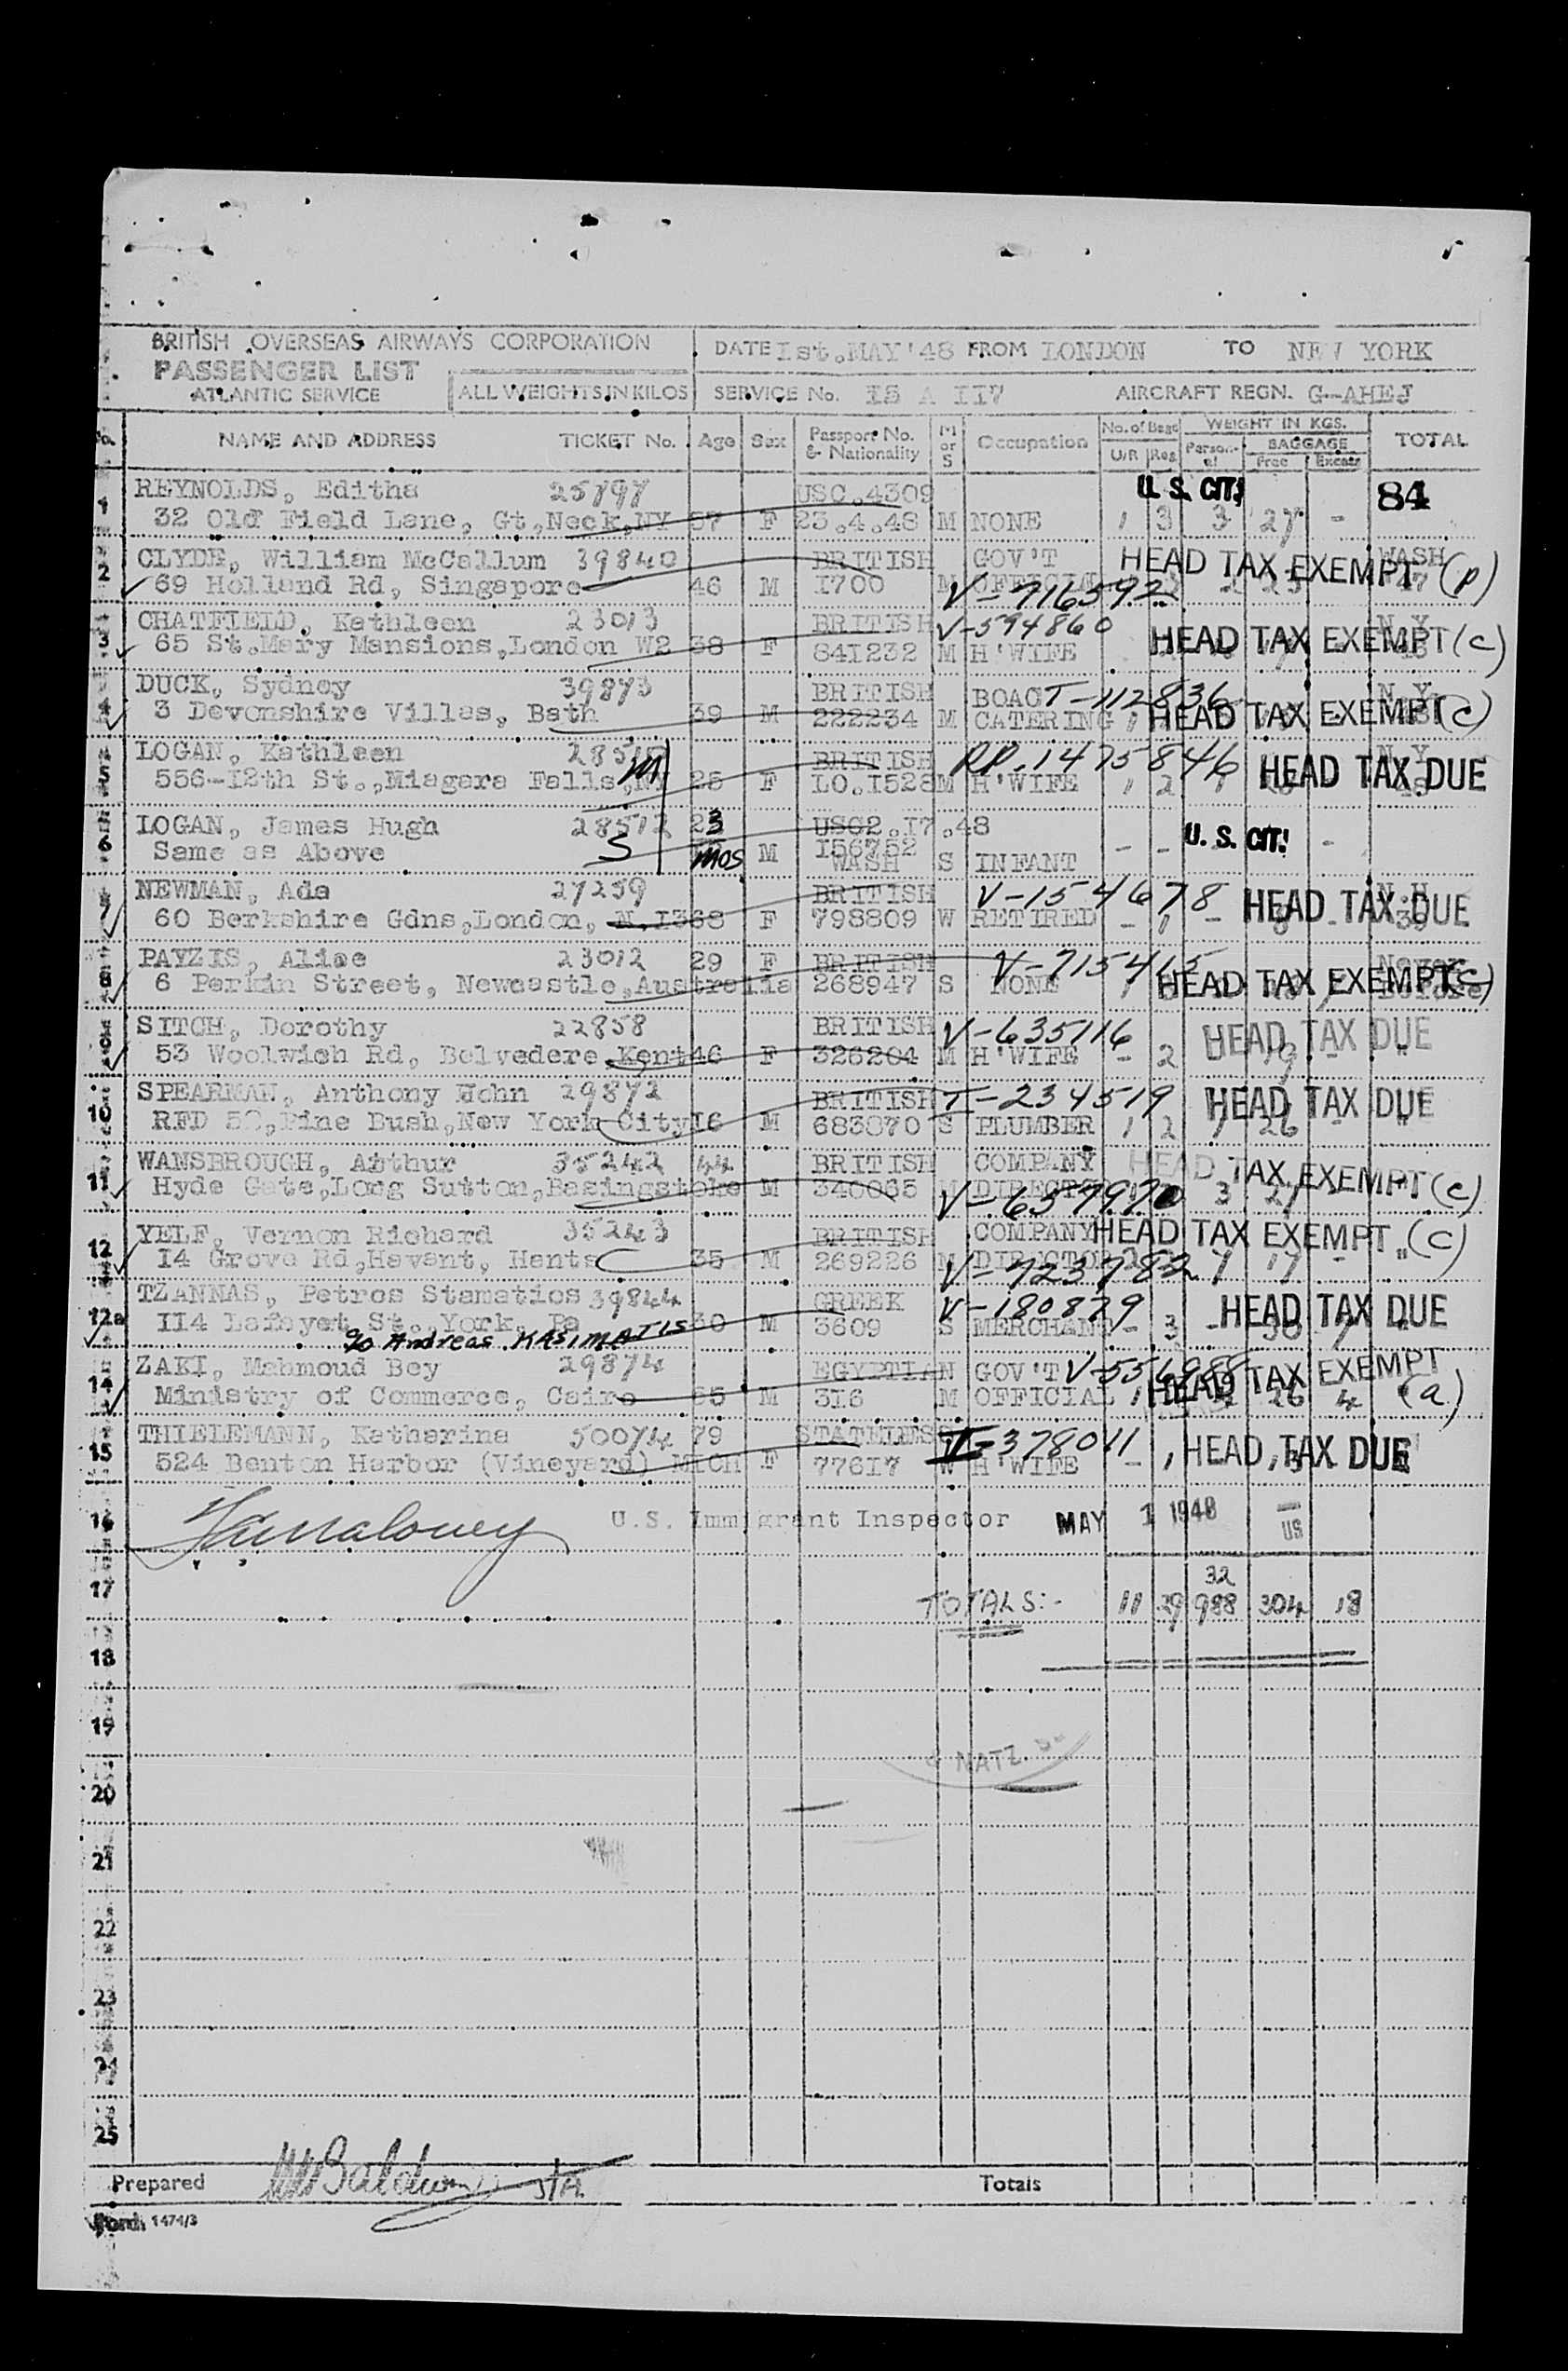 BRITISH OVERSEAS AIRWAYS CORPORATION
PASSENGER LIST
ATLANTIC SERVICE
ALL WEIGHTS IN KILOS
DATE Ist.MAY '48 FROM LONDON TO NEW YORK
SERVICE No. IS A II7 AIRCRAFT REGN. G-AHEJ
No. NAME AND ADDRESS TICKET No. Age Sex Passport No. & Nationality M or S Occupation No. of Bags U/R Reg WEIGHT IN KGS. Personal BAGGAGE Free Excess TOTAL
1 REYNOLDS, Editha 25797 USC.4309 U. S. CIT. 84
32 Old Field Lane, Gt.Neck,NY 57 F 23.4.48 M NONE 1 3 3 27 -
2 CLYDE, William McCallum 39840 BRITISH GOV'T HEAD TAX EXEMPT (p) WASH
69 Holland Rd, Singapore 46 M I700 M OFFICIAL V-716592 47
3 CHATFIELD, Kathleen 23013 BRITISH V-594860 N.Y.
65 St.Mary Mansions,London W2 38 F 84I232 M H'WIFE HEAD TAX EXEMPT (c)
4 DUCK, Sydney 39873 BRITISH BOAC T-112836 N.Y.
3 Devonshire Villas, Bath 39 M 222234 M CATERING HEAD TAX EXEMPT (c)
5 LOGAN, Kathleen BRITISH RP.1475846 N.Y.
556-I2th St.,Miagara Falls,NY M 25 F LO.I528 M H'WIFE 1 2 HEAD TAX DUE
6 LOGAN, James Hugh 28512 23 USC2.I7.48 U. S. CIT.
Same as Above S mos M I56752 WASH S INFANT - -
7 NEWMAN, Ada 27259 BRITISH V-154678 HEAD TAX DUE
60 Berkshire Gdns,London, N.I3 68 F 798809 W RETIRED - 1 -
8 PAYZIS, Alice 23012 29 F BRITISH V-715415 Never Before
6 Perkin Street, Newcastle,Australia 268947 S NONE HEAD TAX EXEMPT (c)
9 SITCH, Dorothy 22858 BRITISH V-635116 HEAD TAX DUE
53 Woolwich Rd, Belvedere,Kent 46 F 326204 M H'WIFE - 2
10 SPEARMAN, Anthony John 29872 BRITISH T-234519 HEAD TAX DUE
RFD Pine Bush,New York City I6 M 683870 S PLUMBER 1 2 1 26 -
11 WANSBROUGH, Arthur 35242 44 BRITISH COMPANY HEAD TAX EXEMPT (c)
Hyde Gate,Long Sutton,Basingstoke M 340065 M DIRECTOR V-657970 3
12 YELF, Vernon Richard 35243 BRITISH COMPANY HEAD TAX EXEMPT (c)
I4 Grove Rd,Havant, Hants 35 M 269226 M DIRECTOR V-723782 17 -
12a TZANNAS, Petros Stamatios 39844 GREEK V-180879 HEAD TAX DUE
II4 Lafayet St.,York, Pa 30 M 3609 S MERCHANT - 3 -
c/o Andreas KASIMATIS
14 ZAKI, Mahmoud Bey 29874 EGYPTIAN GOV'T V-556988 HEAD TAX EXEMPT
Ministry of Commerce, Cairo 55 M 3I6 M OFFICIAL 1 26 4 (a)
15 THIELEMANN, Katharina 50074 79 STATELESS T-378011 HEAD TAX DUE
524 Benton Harbor (Vineyard) MICH F 776I7 W H'WIFE - 1
16 U.S. Immigrant Inspector MAY 1 1948 US
17 TOTALS:- 11 29 32 988 304 18
18
19
& NATZ.
20
21
22
23
24
25
Prepared Totals
Form 1474/3